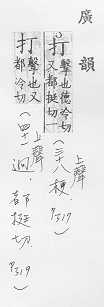 廣韻
打
擊也德冷切
又都挺切
上聲
(三十八梗, P317)
打
擊也又
都冷切
上聲
(四十一迥, 都挺切. P319)